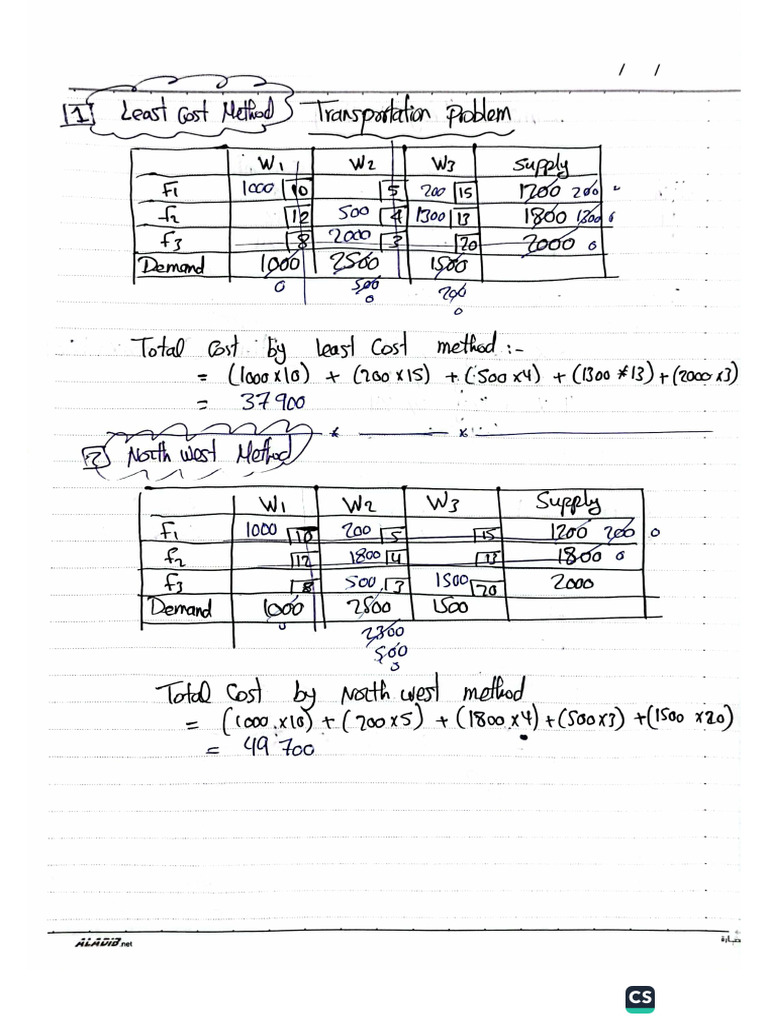 / /
[1] Least Cost Method Transportation Problem
W1 W2 W3 Supply
F1 1000 10 5 200 15 1200 200 0
F2 12 500 4 1300 13 1800 1300 0
F3 8 2000 3 20 2000 0
Demand 1000 2500 1500
0 500 200
0 0
Total Cost by Least Cost method :-
= (1000 x 10) + (200 x 15) + (500 x 4) + (1300 * 13) + (2000 x 3)
= 37900
[2] North West Method
W1 W2 W3 Supply
F1 1000 10 200 5 15 1200 200 0
F2 12 1800 4 13 1800 0
F3 8 500 3 1500 20 2000
Demand 1000 2500 1500
0 2300
500
0
Total Cost by North west method
= (1000 x 10) + (200 x 5) + (1800 x 4) + (500 x 3) + (1500 x 20)
= 49 700
ALADIB.net
CS